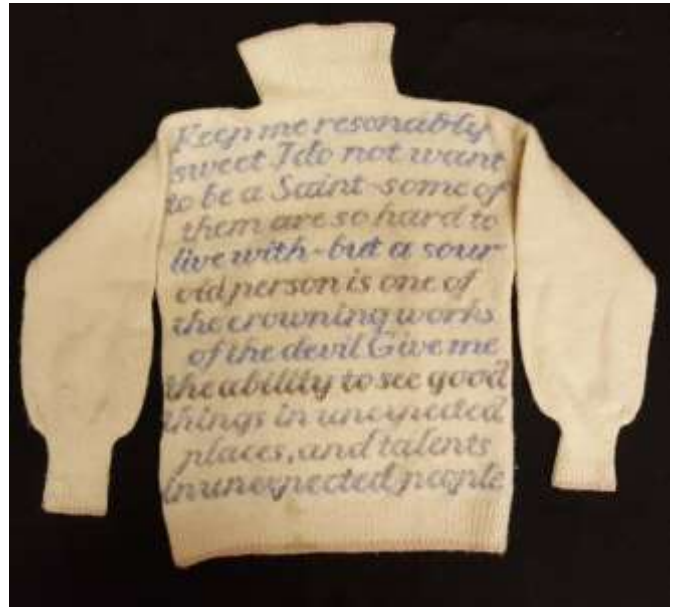 Keep me resonably
sweet I do not want
to be a Saint-some of
them are so hard to
live with-but a sour
old person is one of
the crowning works
of the devil Give me
the ability to see good
things in unexpected
places, and talents
in unexpected people